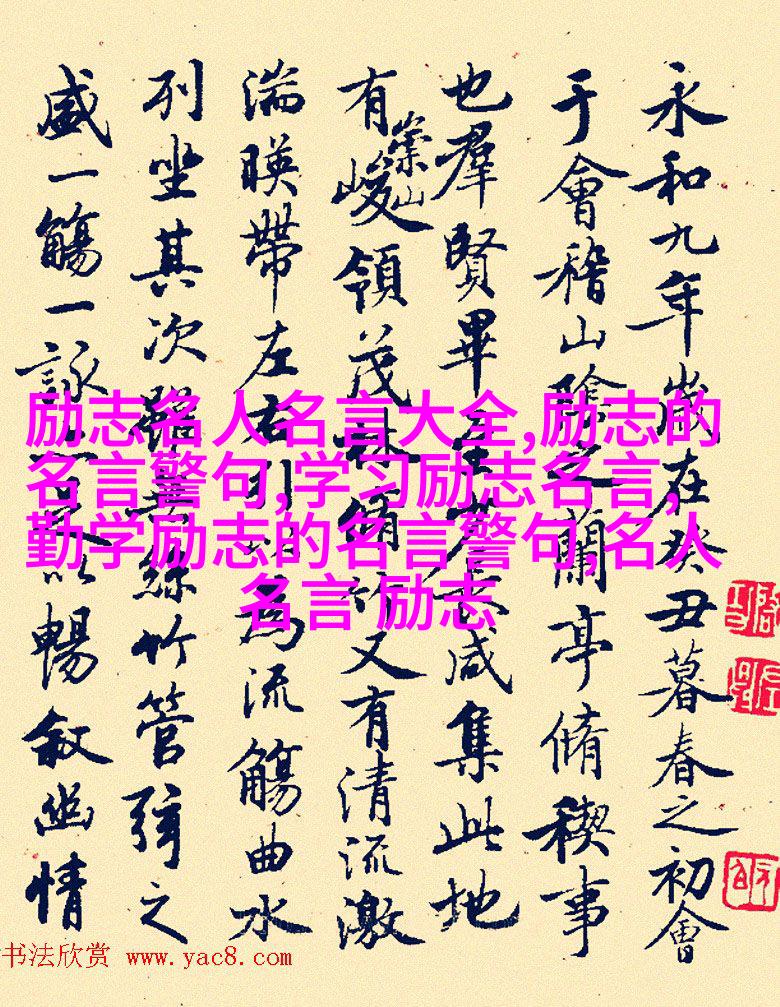 永和九年歲在癸丑暮春之初會
于會稽山陰之蘭亭脩稧事
也羣賢畢至少長咸集此地
有崇山峻領茂林脩竹又有清流激
湍暎帶左右引以為流觴曲水
列坐其次雖無絲竹管弦之
盛一觴一詠亦足以暢叙幽情
励志名人名言大全,励志的
名言警句,学习励志名言,
勤学励志的名言警句,名人
名言 励志
书法欣赏 www.yac8.com